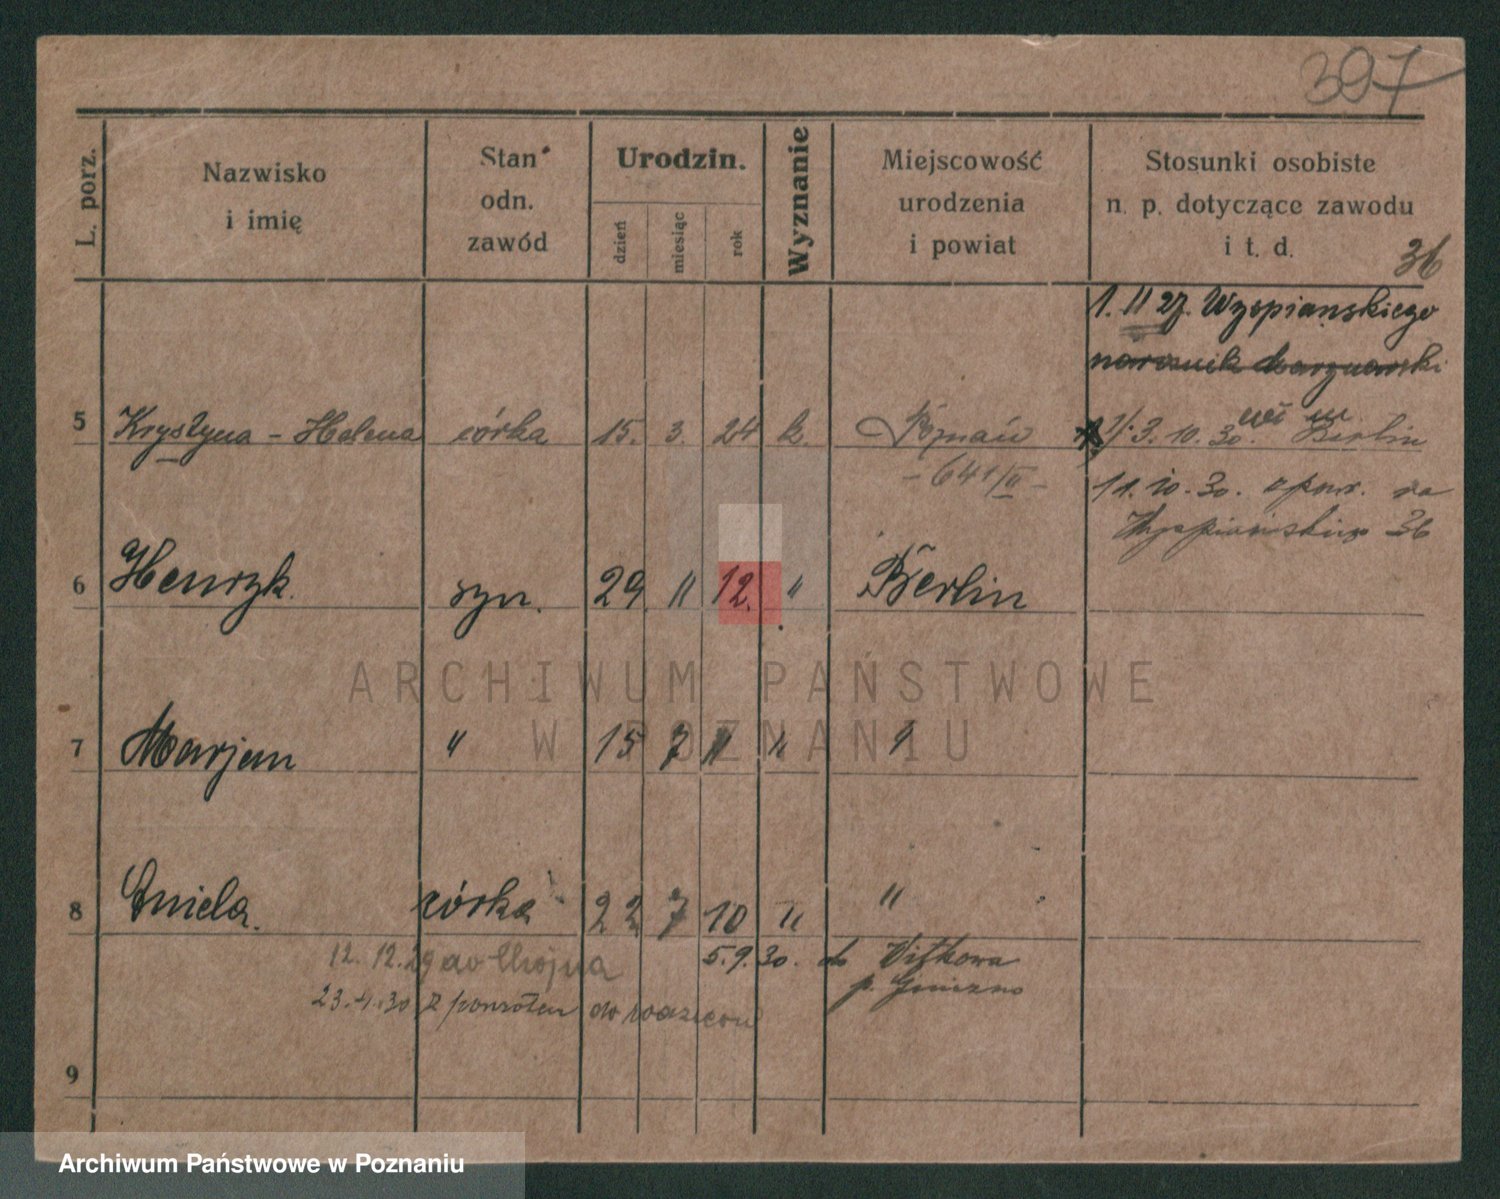 397
L. porz.
Nazwisko
i imię
Stan
odn.
zawód
Urodzin.
dzień
miesiąc
rok
Wyznanie
Miejscowość
urodzenia
i powiat
Stosunki osobiste
n. p. dotyczące zawodu
i t. d.
36
1. 11 27. Wyspiańskiego
5 Krystyna - Helena córka 15. 3. 24 k. Poznań 3. 10. 30. Berlin
- 641/II -
11. 10. 30. z powr. na
Wyspiańskiego 36
6 Henryk. syn. 29 11 12. " Berlin
7 Marjan " 15 7 11 " "
8 Aniela. córka 22 7 10 " "
12. 12. 29 do
5. 9. 30. do Witkowa
p. Gniezno
23. 4. 30 z powrotem do rodziców
9
ARCHIWUM PAŃSTWOWE
W POZNANIU
Archiwum Państwowe w Poznaniu